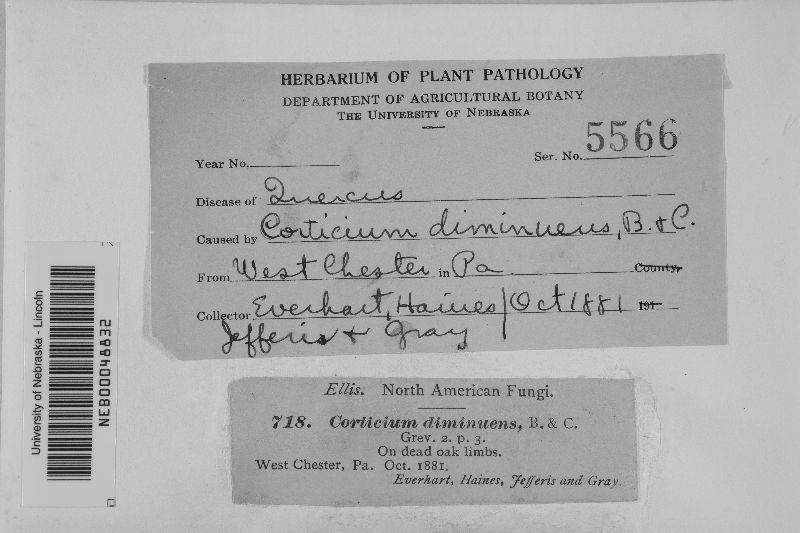 HERBARIUM OF PLANT PATHOLOGY
DEPARTMENT OF AGRICULTURAL BOTANY
THE UNIVERSITY OF NEBRASKA
Year No.
Ser. No. 5566
Disease of Quercus
Caused by Corticium diminuens, B. & C.
From West Chester in Pa County,
Collector Everhart, Haines / Oct 1881 191
Jefferis & Gray
University of Nebraska - Lincoln
NEB00048832
Ellis. North American Fungi.
718. Corticium diminuens, B. & C.
Grev. 2. p. 3.
On dead oak limbs.
West Chester, Pa. Oct. 1881.
Everhart, Haines, Jefferis and Gray.